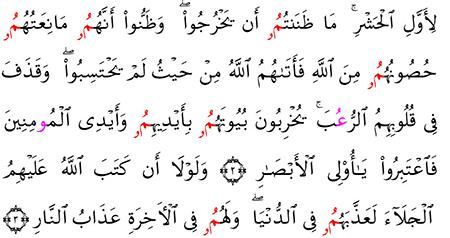 لِأَوَّلِ ٱلْحَشْرِۚ مَا ظَنَنتُمُۥ أَن يَخْرُجُواْۖ وَظَنُّواْ أَنَّهُمُۥ مَانِعَتُهُمُۥ
حُصُونُهُمُۥ مِنَ ٱللَّهِ فَأَتَىٰهُمُ ٱللَّهُ مِنْ حَيْثُ لَمْ يَحْتَسِبُواْۖ وَقَذَفَ
فِى قُلُوبِهِمُ ٱلرُّعُبَۚ يُخْرِبُونَ بُيُوتَهُمُۥ بِأَيْدِيهِمُۥ وَأَيْدِى ٱلْمُومِنِينَ
فَٱعْتَبِرُواْ يَٰأُوْلِى ٱلْأَبْصَٰرِ ﴿٢﴾ وَلَوْلَا أَن كَتَبَ ٱللَّهُ عَلَيْهِمُ
ٱلْجَلَآءَ لَعَذَّبَهُمُۥ فِى ٱلدُّنْيَاۖ وَلَهُمُۥ فِى ٱلْأَخِرَةِ عَذَابُ ٱلنَّارِ ﴿٣﴾